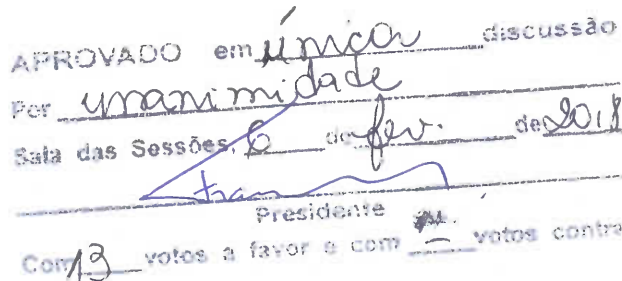 APROVADO em única discussão
Por unanimidade
Sala das Sessões, 6 de fev. de 2018
Presidente
Com 13 votos a favor e com — votos contra